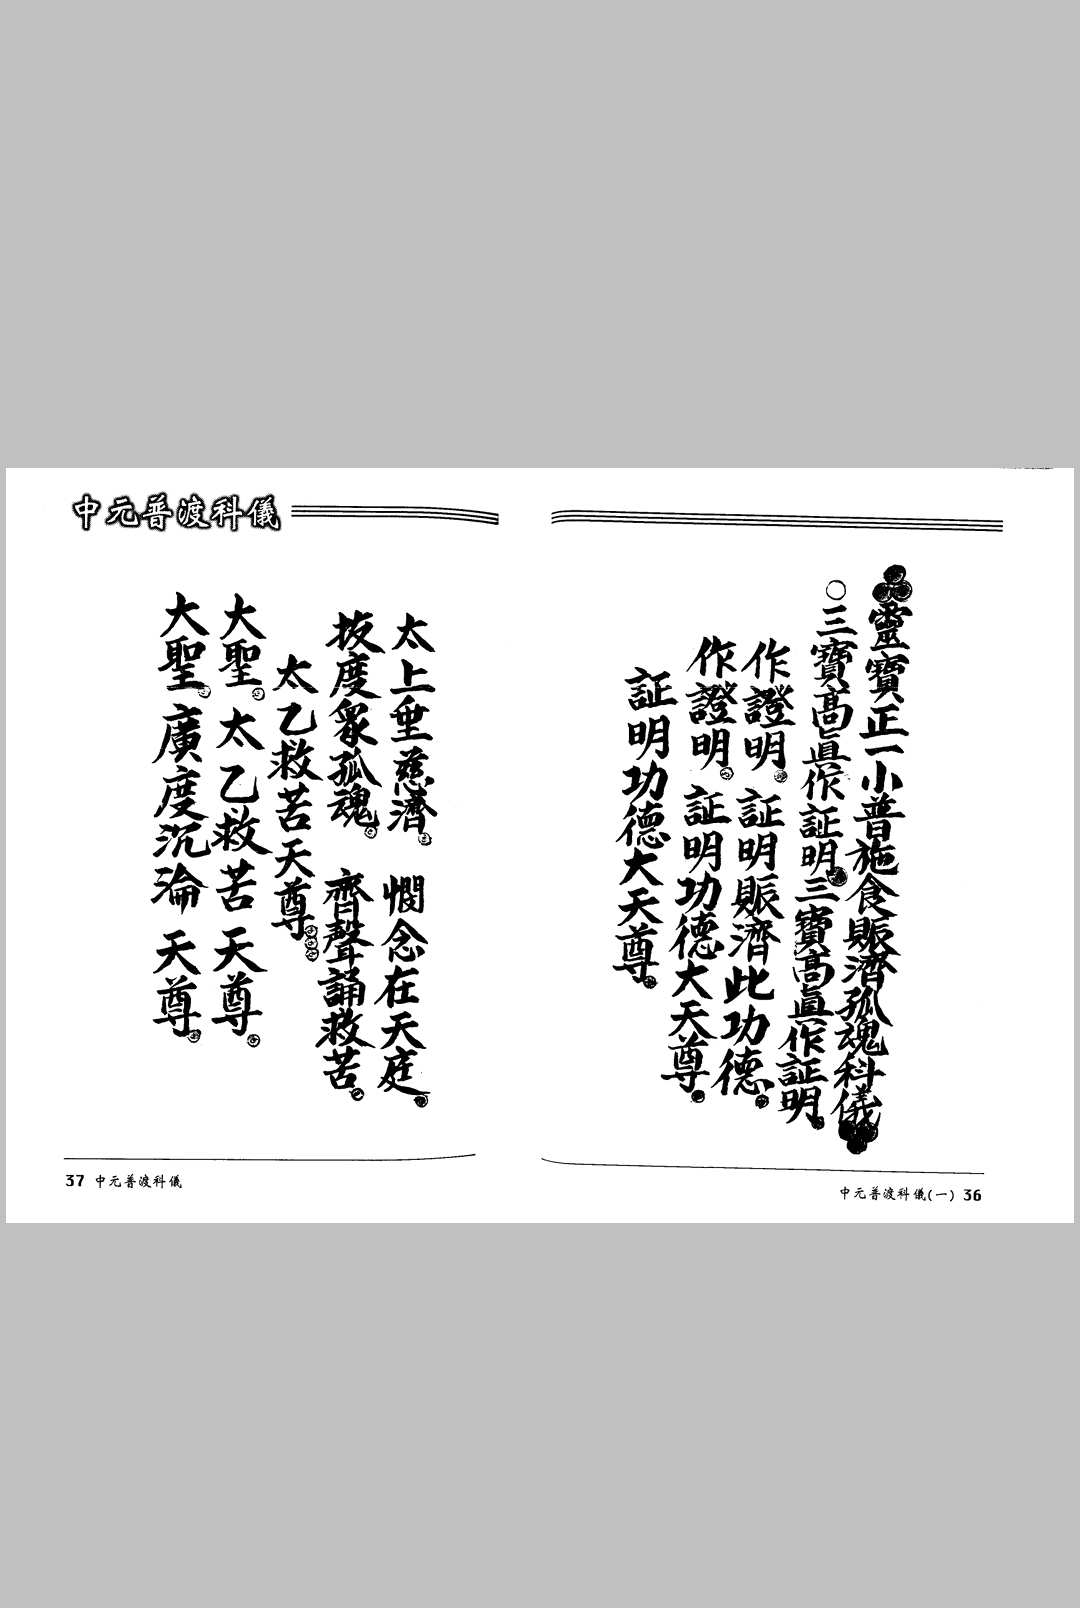 靈寶正一小普施食賑濟孤魂科儀
○三寶高眞作証明三寶高眞作証明
作證明。証明賑濟此功德。
作證明。証明功德大天尊。
証明功德大天尊。
中元普渡科儀(一) 36
中元普渡科儀
太上垂慈濟。憫念在天庭。
拔度衆孤魂。齊聲誦救苦。
太乙救苦天尊。。。
大聖。太乙救苦天尊。
大聖。廣度沉淪天尊。
37 中元普渡科儀